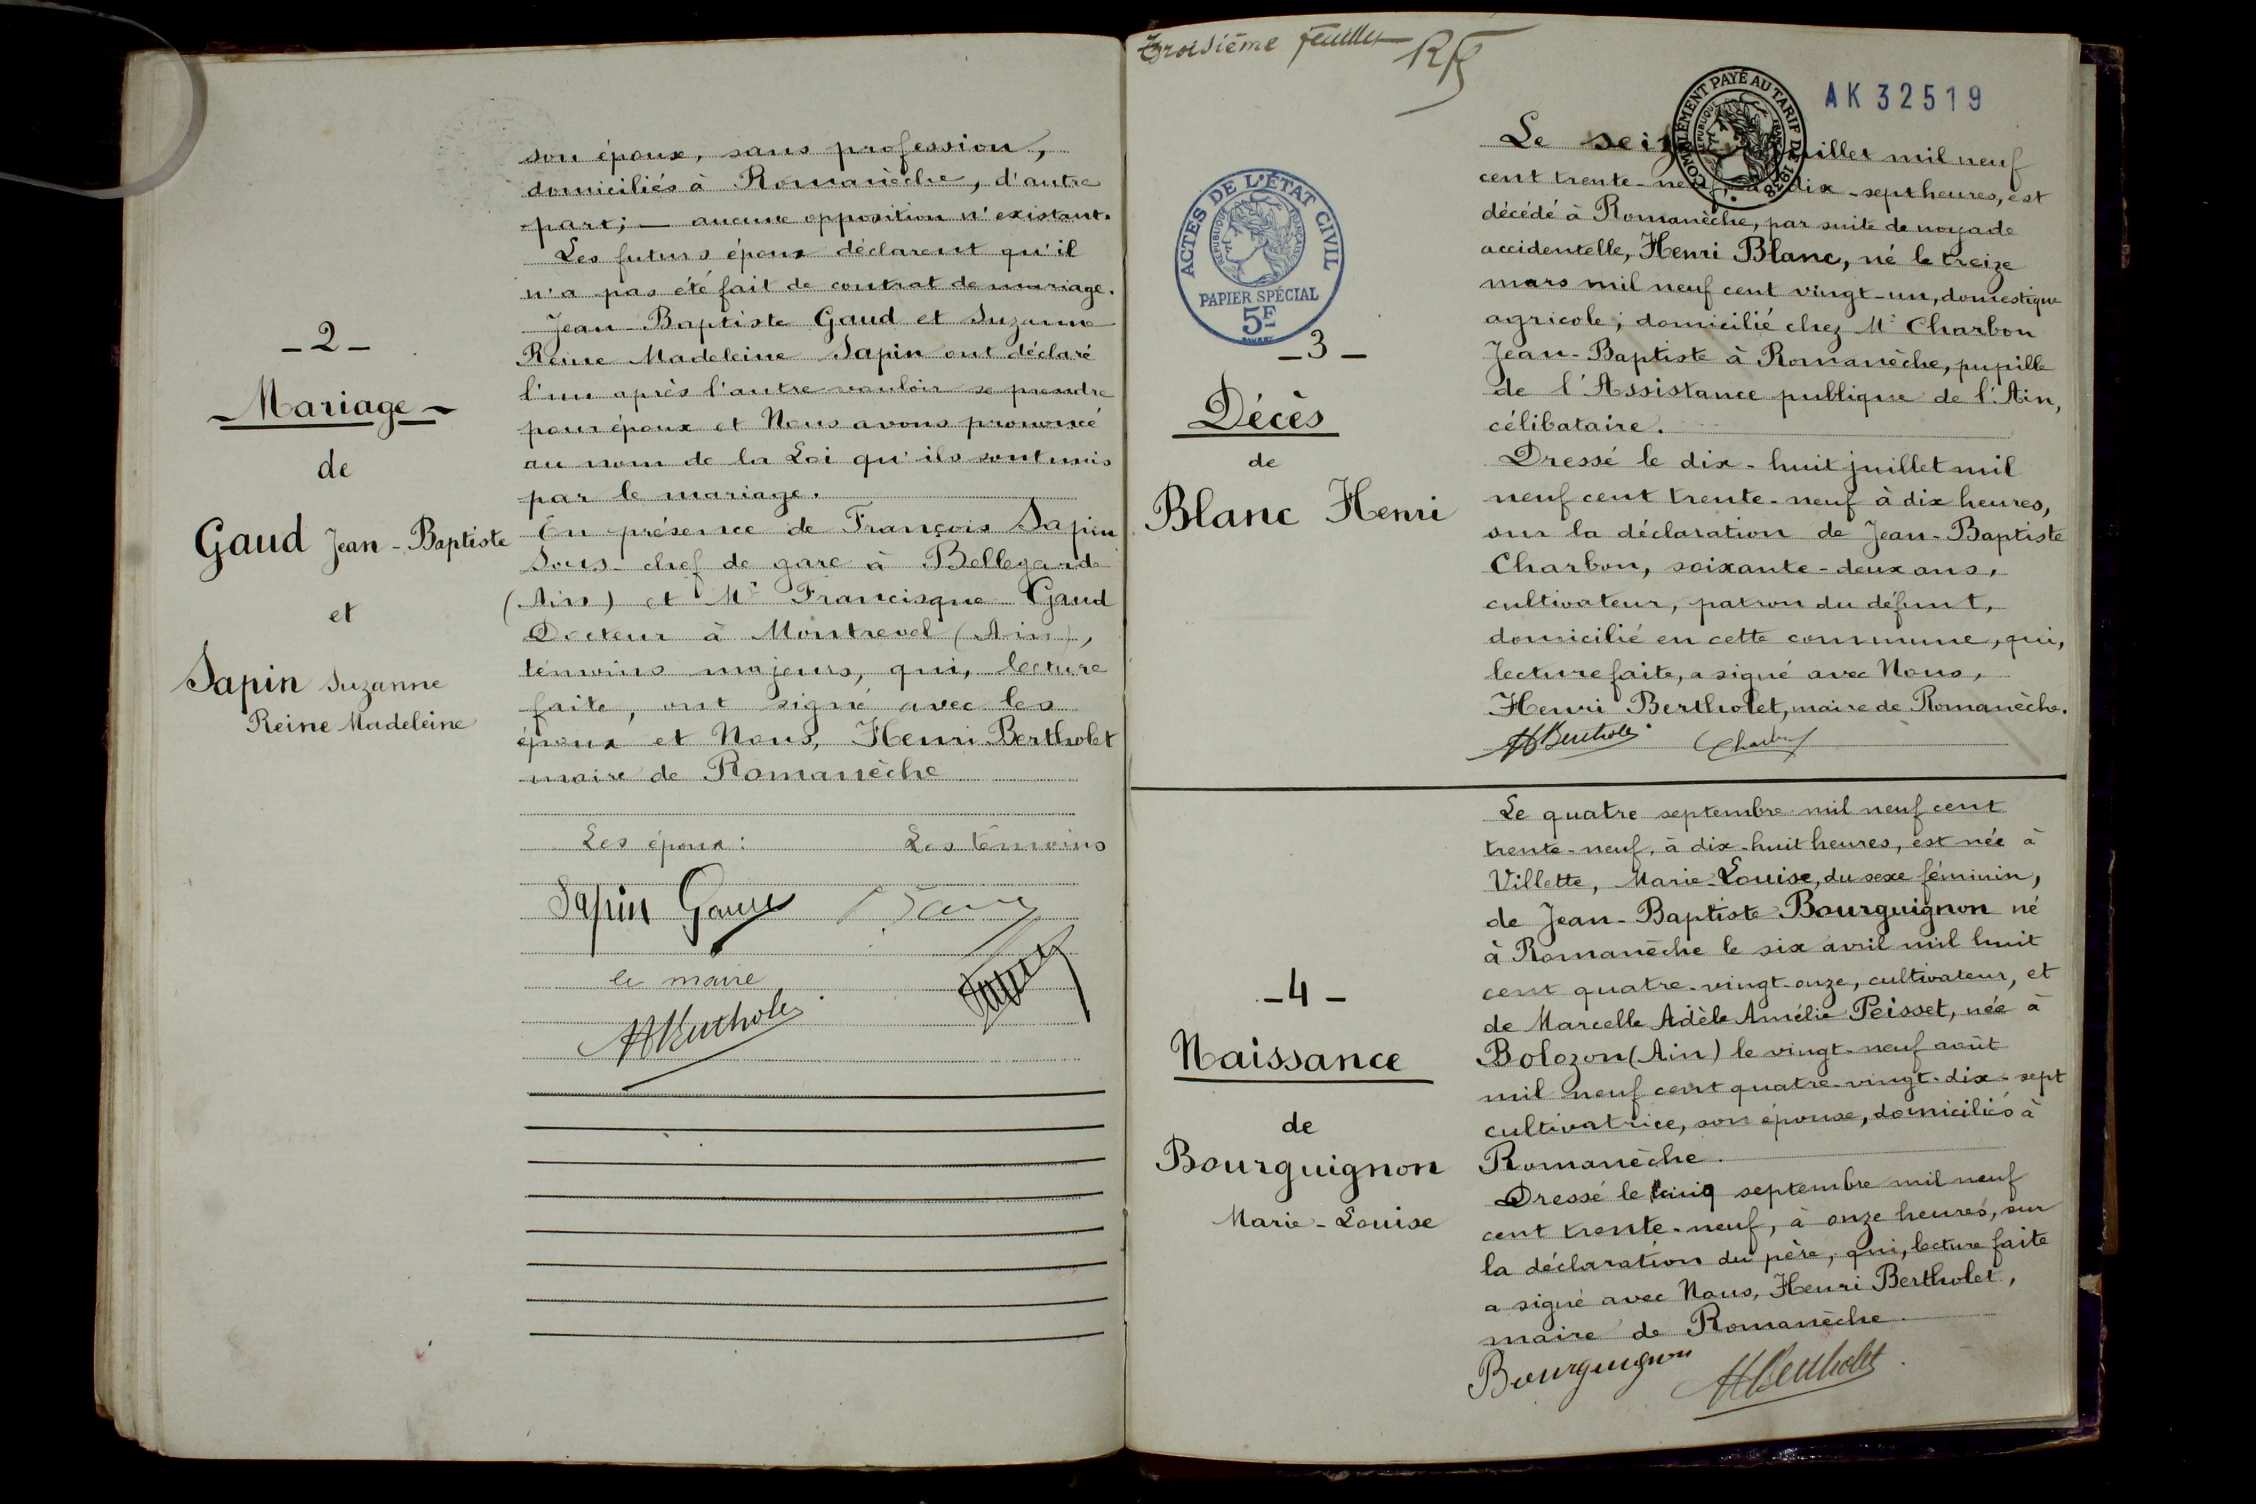 - 2 -
Mariage
de
Gaud Jean-Baptiste
et
Sapin Suzanne
Reine Madeleine
son époux, sans profession,
domiciliés à Romanèche, d'autre
part; — aucune opposition n'existant.
Les futurs époux déclarent qu'il
n'a pas été fait de contrat de mariage.
Jean-Baptiste Gaud et Suzanne
Reine Madeleine Sapin ont déclaré
l'un après l'autre vouloir se prendre
pour époux et Nous avons prononcé
au nom de la Loi qu'ils sont unis
par le mariage.
En présence de François Sapin
Sous-chef de gare à Bellegarde
(Ain) et Mr Francisque Gaud
Docteur à Montrevel (Ain),
témoins majeurs, qui, lecture
faite, ont signé avec les
époux et Nous, Henri Bertholet
maire de Romanèche
Les époux: Les témoins
Sapin Gaud
Sapin
le maire
HBertholet
Troisième feuillet
AK 32519
COMPLÉMENT PAYÉ AU TARIF DE 1938
RÉPUBLIQUE FRANÇAISE
ACTES DE L'ÉTAT CIVIL
RÉPUBLIQUE FRANÇAISE
PAPIER SPÉCIAL
5F
- 3 -
Décès
de
Blanc Henri
Le seize juillet mil neuf
cent trente-neuf, à dix-sept heures, est
décédé à Romanèche, par suite de noyade
accidentelle, Henri Blanc, né le treize
mars mil neuf cent vingt-un, domestique
agricole; domicilié chez Mr Charbon
Jean-Baptiste à Romanèche, pupille
de l'Assistance publique de l'Ain,
célibataire.
Dressé le dix-huit juillet mil
neuf cent trente-neuf à dix heures,
sur la déclaration de Jean-Baptiste
Charbon, soixante-deux ans,
cultivateur, patron du défunt,
domicilié en cette commune, qui,
lecture faite, a signé avec Nous,
Henri Bertholet, maire de Romanèche.
HBertholet Charbon
- 4 -
Naissance
de
Bourguignon
Marie-Louise
Le quatre septembre mil neuf cent
trente-neuf, à dix-huit heures, est née à
Villette, Marie-Louise, du sexe féminin,
de Jean-Baptiste Bourguignon né
à Romanèche le six avril mil huit
cent quatre-vingt-onze, cultivateur, et
de Marcelle Adèle Amélie Peisset, née à
Bolozon (Ain) le vingt-neuf août
mil neuf cent quatre-vingt-dix-sept
cultivatrice, son épouse, domiciliés à
Romanèche.
Dressé le cinq septembre mil neuf
cent trente-neuf, à onze heures, sur
la déclaration du père, qui, lecture faite
a signé avec Nous, Henri Bertholet,
maire de Romanèche.
Bourguignon HBertholet